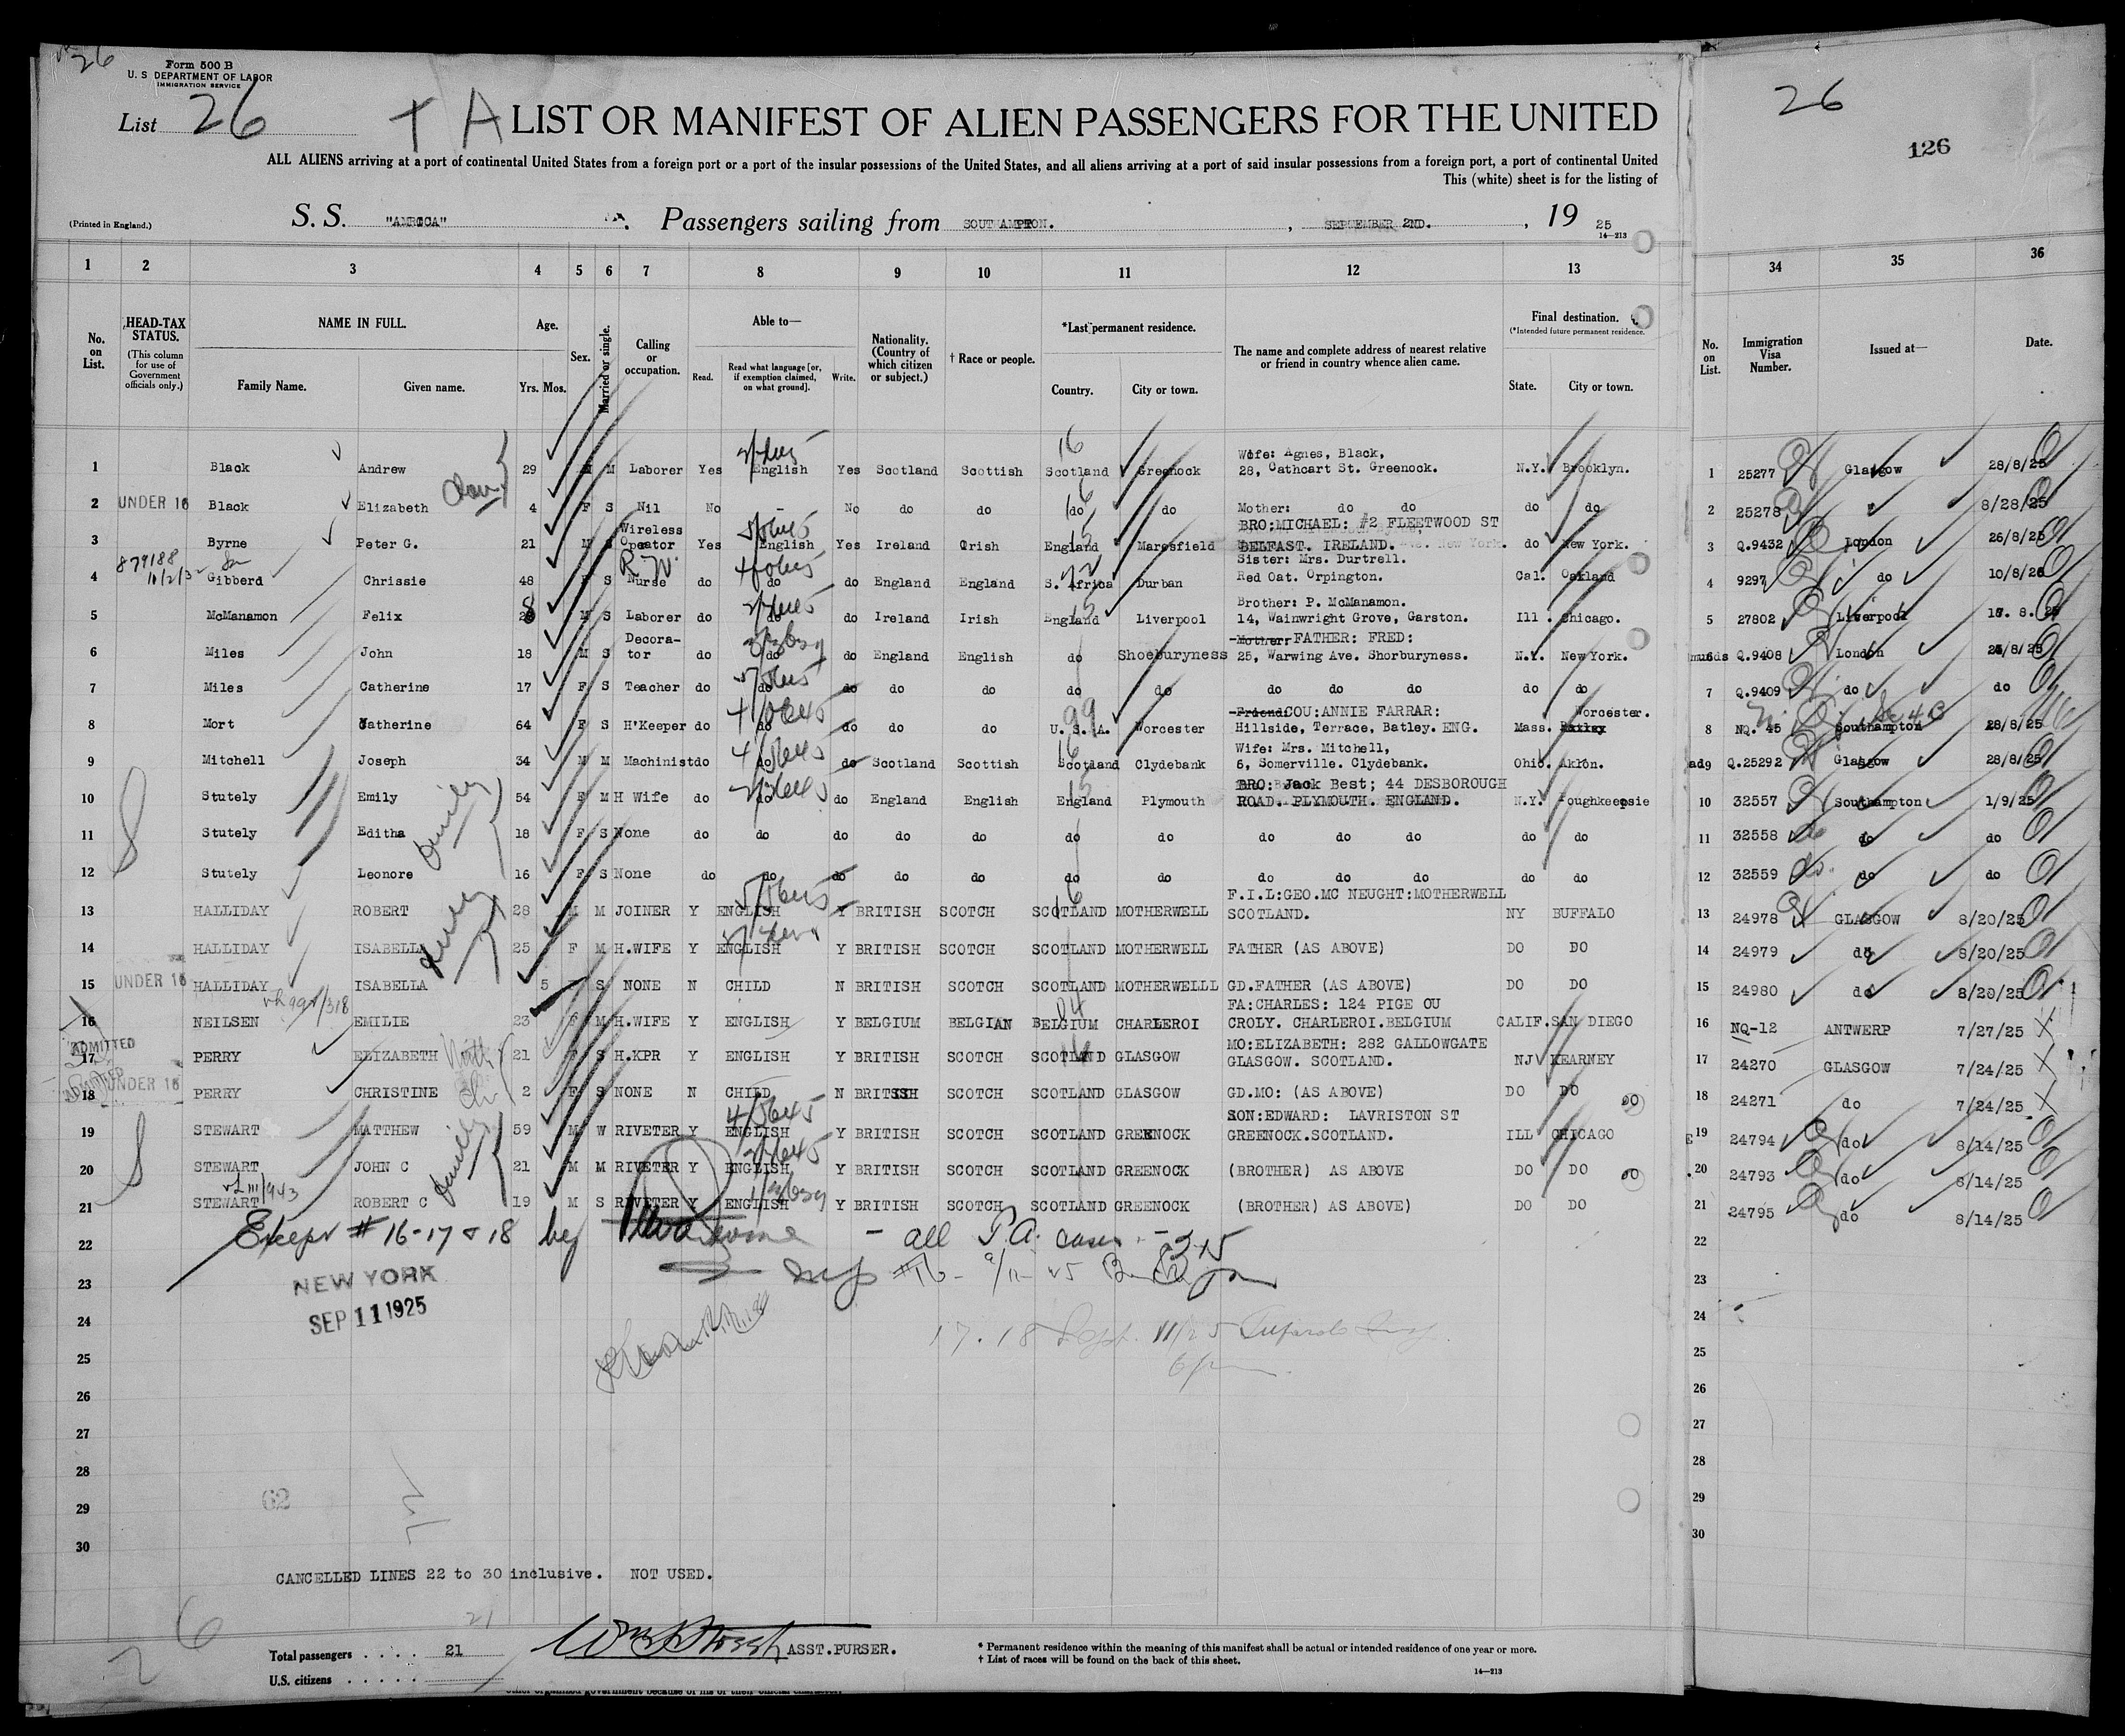 26
Form 500 B
U. S DEPARTMENT OF LABOR
IMMIGRATION SERVICE
List 26
† A LIST OR MANIFEST OF ALIEN PASSENGERS FOR THE UNITED
ALL ALIENS arriving at a port of continental United States from a foreign port or a port of the insular possessions of the United States, and all aliens arriving at a port of said insular possessions from a foreign port, a port of continental United
This (white) sheet is for the listing of
(Printed in England.) S. S. Passengers sailing from SOUTHAMPTON. , SEPTEMBER 2ND. , 19 25
14—213
26
126
1 2 3 4 5 6 7 8 9 10 11 12 13 34 35 36
No. on List.
HEAD-TAX STATUS.
(This column for use of Government officials only.)
NAME IN FULL.
Family Name. Given name.
Age.
Yrs. Mos.
Sex.
Married or single.
Calling or occupation.
Able to—
Read. Read what language [or, if exemption claimed, on what ground]. Write.
Nationality. (Country of which citizen or subject.)
† Race or people.
*Last permanent residence.
Country. City or town.
The name and complete address of nearest relative or friend in country whence alien came.
Final destination.
(*Intended future permanent residence.
State. City or town.
No. on List.
Immigration Visa Number.
Issued at—
Date.
1 Black Andrew 29 M M Laborer Yes English Yes Scotland Scottish Scotland Greenock Wife: Agnes, Black, 28, Cathcart St. Greenock. N.Y. Brooklyn. 1 25277 Glasgow 28/8/25
2 UNDER 16 Black Elizabeth 4 F S Nil No - No do do do do Mother: do do do do 2 25278 8/28/25
3 Byrne Peter G. 21 M S Wireless Opeator Yes English Yes Ireland Irish England Maresfield BRO:MICHAEL: #2 FLEETWOOD ST BELFAST. IRELAND. do New York. 3 Q.9432 London 26/8/25
879188
4 Gibberd Chrissie 48 F S Nurse do do do England England S. Africa Durban Sister: Mrs. Durtrell. Red Oat. Orpington. Cal. Oakland 4 9297 do 10/8/25
5 McManamon Felix 28 M S Laborer do do do Ireland Irish England Liverpool Brother: P. McManamon. 14, Wainwright Grove, Garston. Ill. Chicago. 5 27802 Liverpool 8. 25
6 Miles John 18 M S Decora-tor do do do England English do Shoeburyness Mother: FATHER: FRED: 25, Warwing Ave. Shorburyness. N.Y. New York. 6 Q.9408 London /8/25
7 Miles Catherine 17 F S Teacher do do do do do do do do do do do do 7 Q.9409 do do
8 Mort Catherine 64 F S H'Keeper do do do do do U. S. A. Worcester Friend COU:ANNIE FARRAR: Hillside, Terrace, Batley. ENG. Mass. Batley Worcester. 8 NQ. 45 Southampton 28/8/25
9 Mitchell Joseph 34 M M Machinist do do do Scotland Scottish Scotland Clydebank Wife: Mrs. Mitchell, 6, Somerville. Clydebank. Ohio. Aklon. 9 Q.25292 Glasgow 28/8/25
10 Stutely Emily 54 F M H Wife do do do England English England Plymouth BRO: Jack Best; 44 DESBOROUGH ROAD. PLYMOUTH. ENGLAND. N.Y. Poughkeepsie 10 32557 Southampton 1/9/25
11 Stutely Editha 18 F S None do do do do do do do do do do do do 11 32558 do do
12 Stutely Leonore 16 F S None do do do do do do do do do do do do 12 32559 do do
13 HALLIDAY ROBERT 28 M M JOINER Y ENGLISH Y BRITISH SCOTCH SCOTLAND MOTHERWELL F.I.L:GEO.MC NEUGHT:MOTHERWELL SCOTLAND. NY BUFFALO 13 24978 GLASGOW 8/20/25
14 HALLIDAY ISABELLA 25 F M H.WIFE Y ENGLISH Y BRITISH SCOTCH SCOTLAND MOTHERWELL FATHER (AS ABOVE) DO DO 14 24979 do 8/20/25
15 UNDER 16 HALLIDAY ISABELLA 5 F S NONE N CHILD N BRITISH SCOTCH SCOTLAND MOTHERWELLL GD.FATHER (AS ABOVE) DO DO 15 24980 do 8/20/25
16 NEILSEN EMILIE 23 F M H.WIFE Y ENGLISH Y BELGIUM BELGIAN BELGIUM CHARLEROI FA:CHARLES: 124 PIGE OU CROLY. CHARLEROI.BELGIUM CALIF. SAN DIEGO 16 NQ-12 ANTWERP 7/27/25
17 ADMITTED PERRY ELIZABETH 21 F S H.KPR Y ENGLISH Y BRITISH SCOTCH SCOTLAND GLASGOW MO:ELIZABETH: 282 GALLOWGATE GLASGOW. SCOTLAND. NJ KEARNEY 17 24270 GLASGOW 7/24/25
18 ADMITTED UNDER 16 PERRY CHRISTINE 2 F S NONE N CHILD N BRITISH SCOTCH SCOTLAND GLASGOW GD.MO: (AS ABOVE) DO DO 18 24271 do 7/24/25
19 STEWART MATTHEW 59 M W RIVETER Y ENGLISH Y BRITISH SCOTCH SCOTLAND GREENOCK SON:EDWARD: LAVRISTON ST GREENOCK.SCOTLAND. ILL CHICAGO 19 24794 do 8/14/25
20 STEWART JOHN C 21 M M RIVETER Y ENGLISH Y BRITISH SCOTCH SCOTLAND GREENOCK (BROTHER) AS ABOVE DO DO 20 24793 do 8/14/25
21 STEWART ROBERT C 19 M S RIVETER Y ENGLISH Y BRITISH SCOTCH SCOTLAND GREENOCK (BROTHER) AS ABOVE) DO DO 21 24795 do 8/14/25
22 Except # 16-17 & 18 by - all P.A. cases - 22
23 NEW YORK 23
24 SEP 11 1925 24
25 25
26 26
27 27
28 28
29 62 29
30 30
CANCELLED LINES 22 to 30 inclusive. NOT USED.
26 21
Total passengers . . . . 21 ASST.PURSER.
U.S. citizens . . . . .
* Permanent residence within the meaning of this manifest shall be actual or intended residence of one year or more.
† List of races will be found on the back of this sheet.
14—213